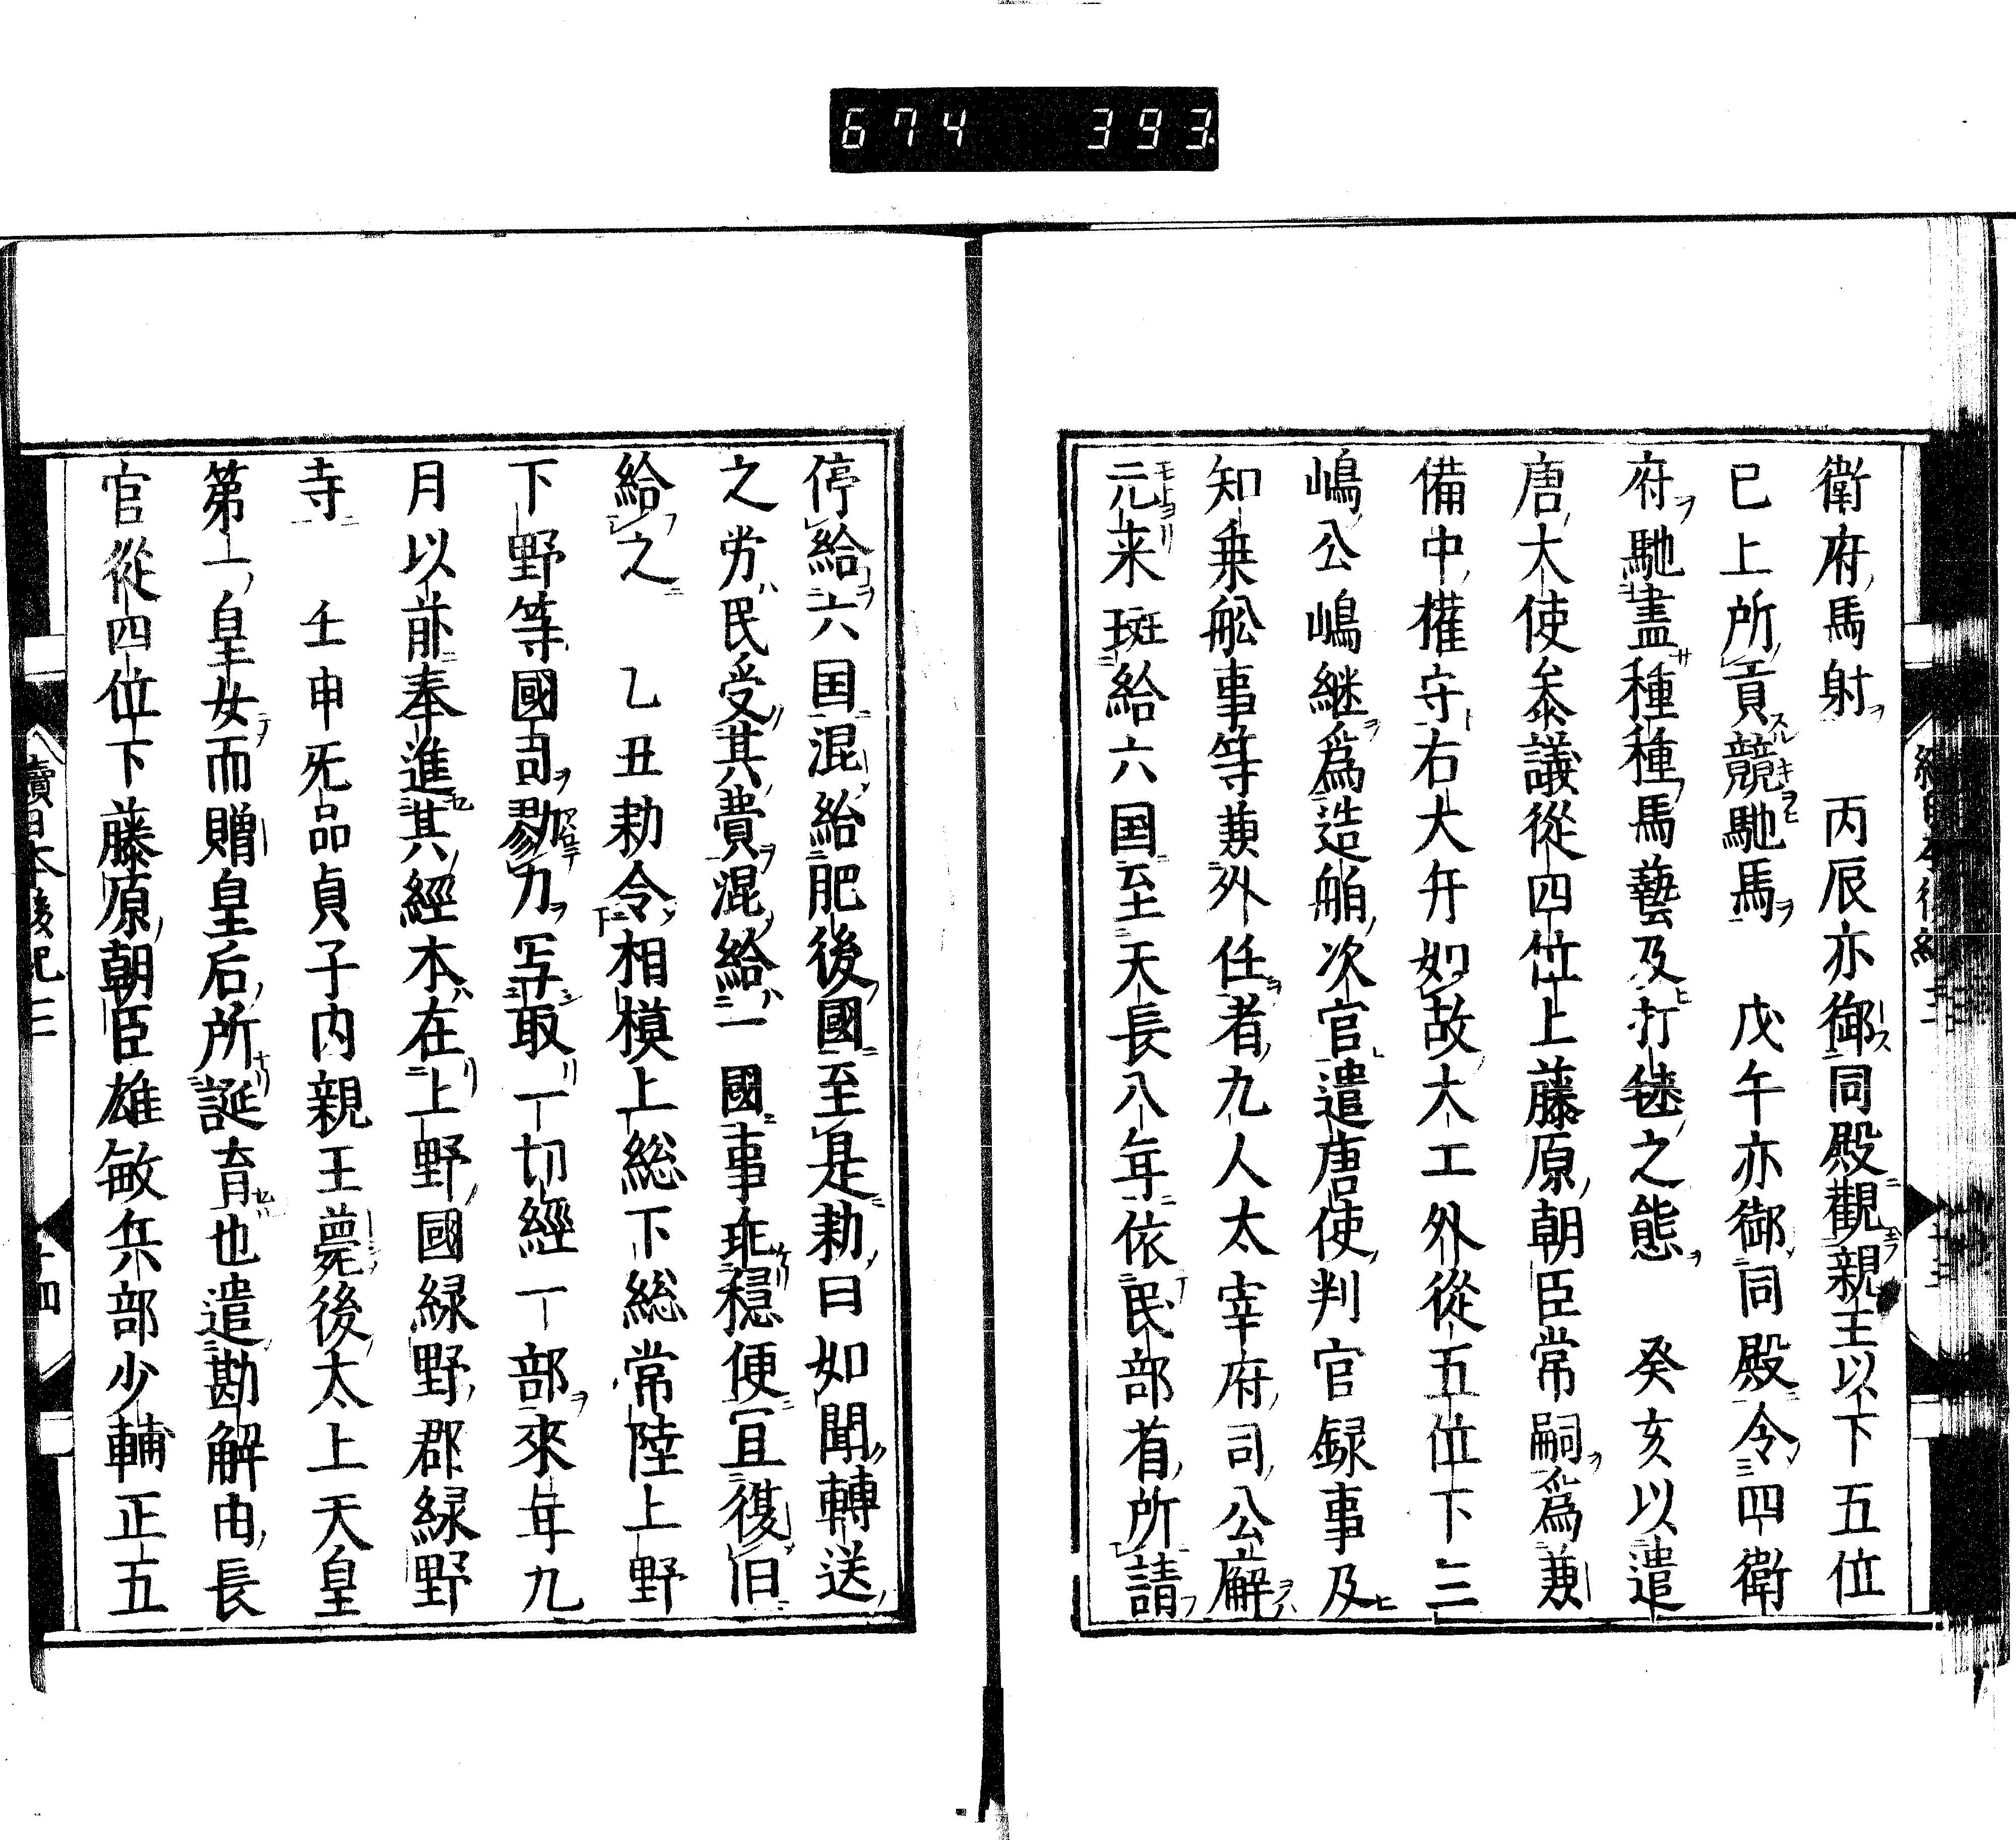 674 393
衛府馬射 丙辰亦御同殿觀親王以下五位
已上所貢競馳馬 戊午亦御同殿令四衛
府馳盡種種馬藝及打毬之態 癸亥以遣
唐大使叅議從四位上藤原朝臣常嗣爲兼
備中權守右大弁如故大工外從五位下三
嶋公嶋継爲造舶次官遣唐使判官録事及
知乗舩事等兼外任者九人太宰府司公廨
元来班給六国至天長八年依民部省所請
停給六国混給肥後國至是勅曰如聞轉送
之労民受其費混給一國事乖穏便冝復旧
給之 乙丑勅令相模上総下総常陸上野
下野等國司勠力写取一切經一部來年九
月以前奉進其經本在上野國緑野郡緑野
寺 壬申旡品貞子内親王薨後太上天皇
第一皇女而贈皇后所誕育也遣勘解由長
官從四位下藤原朝臣雄敏兵部少輔正五
續日本後紀三
十四